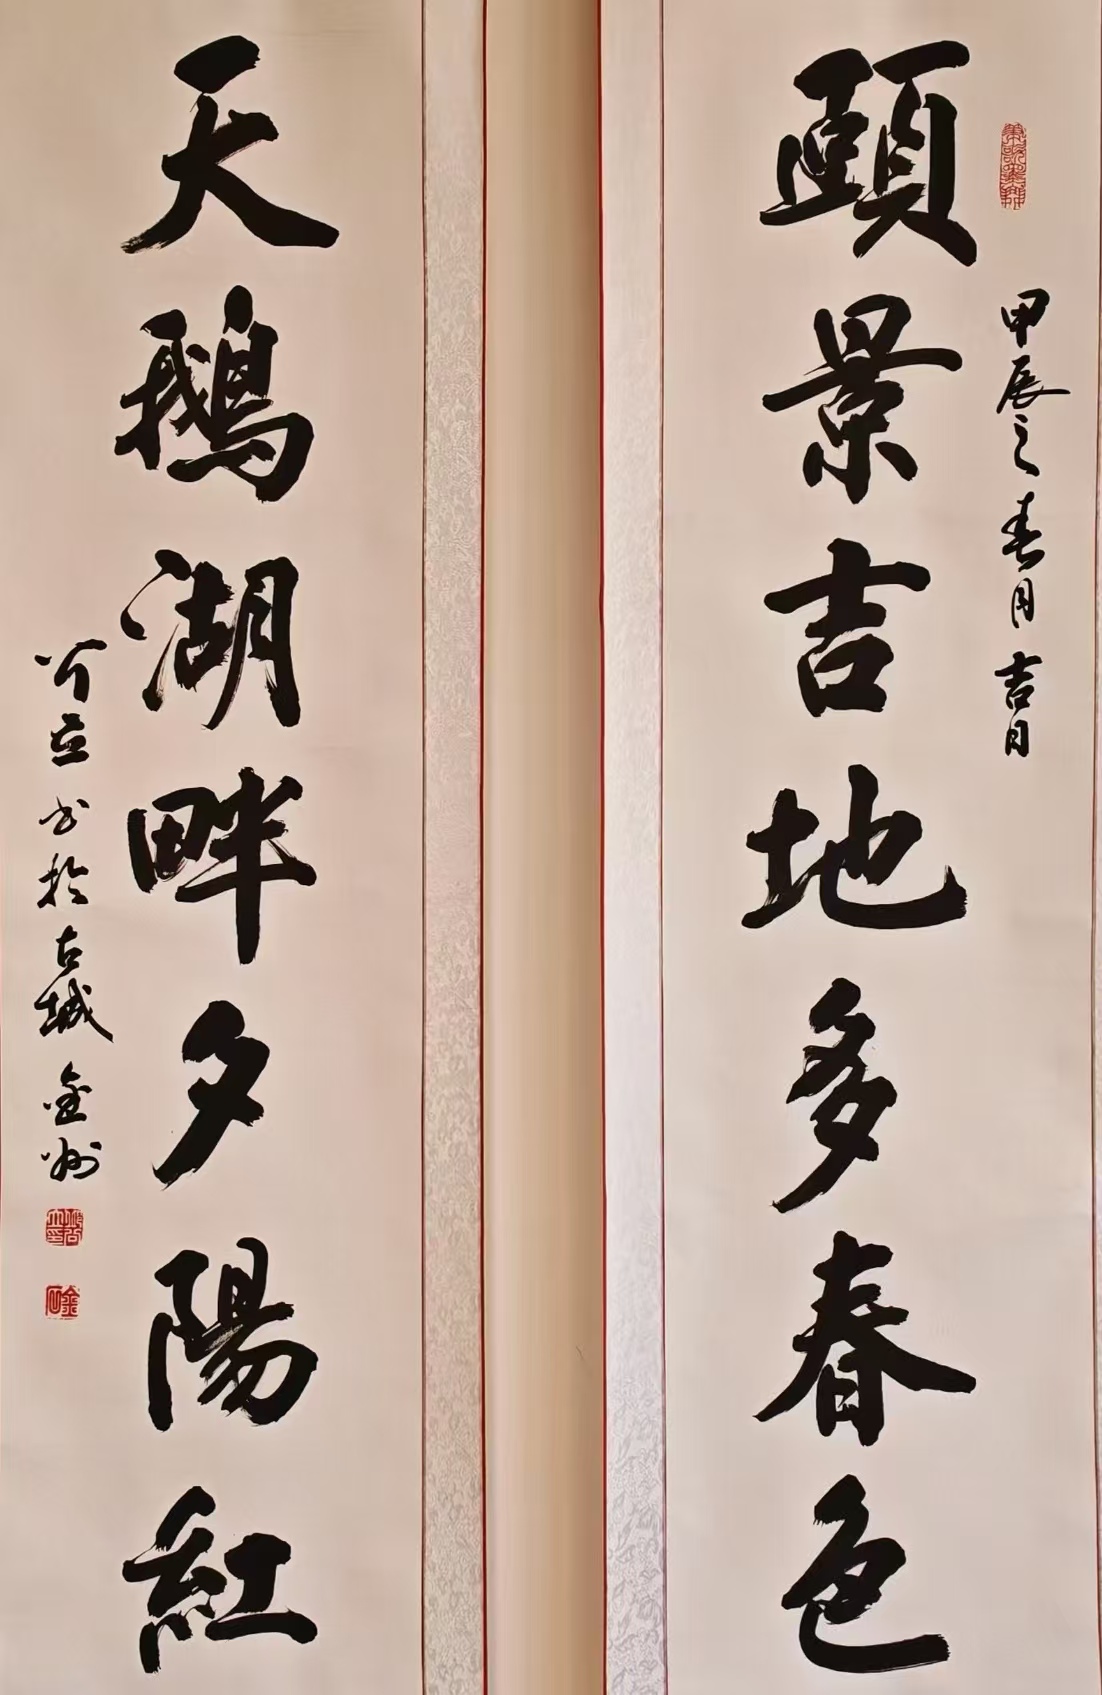 頤景吉地多春色
甲辰之春月吉日
天鵝湖畔夕陽紅
書於古城金州